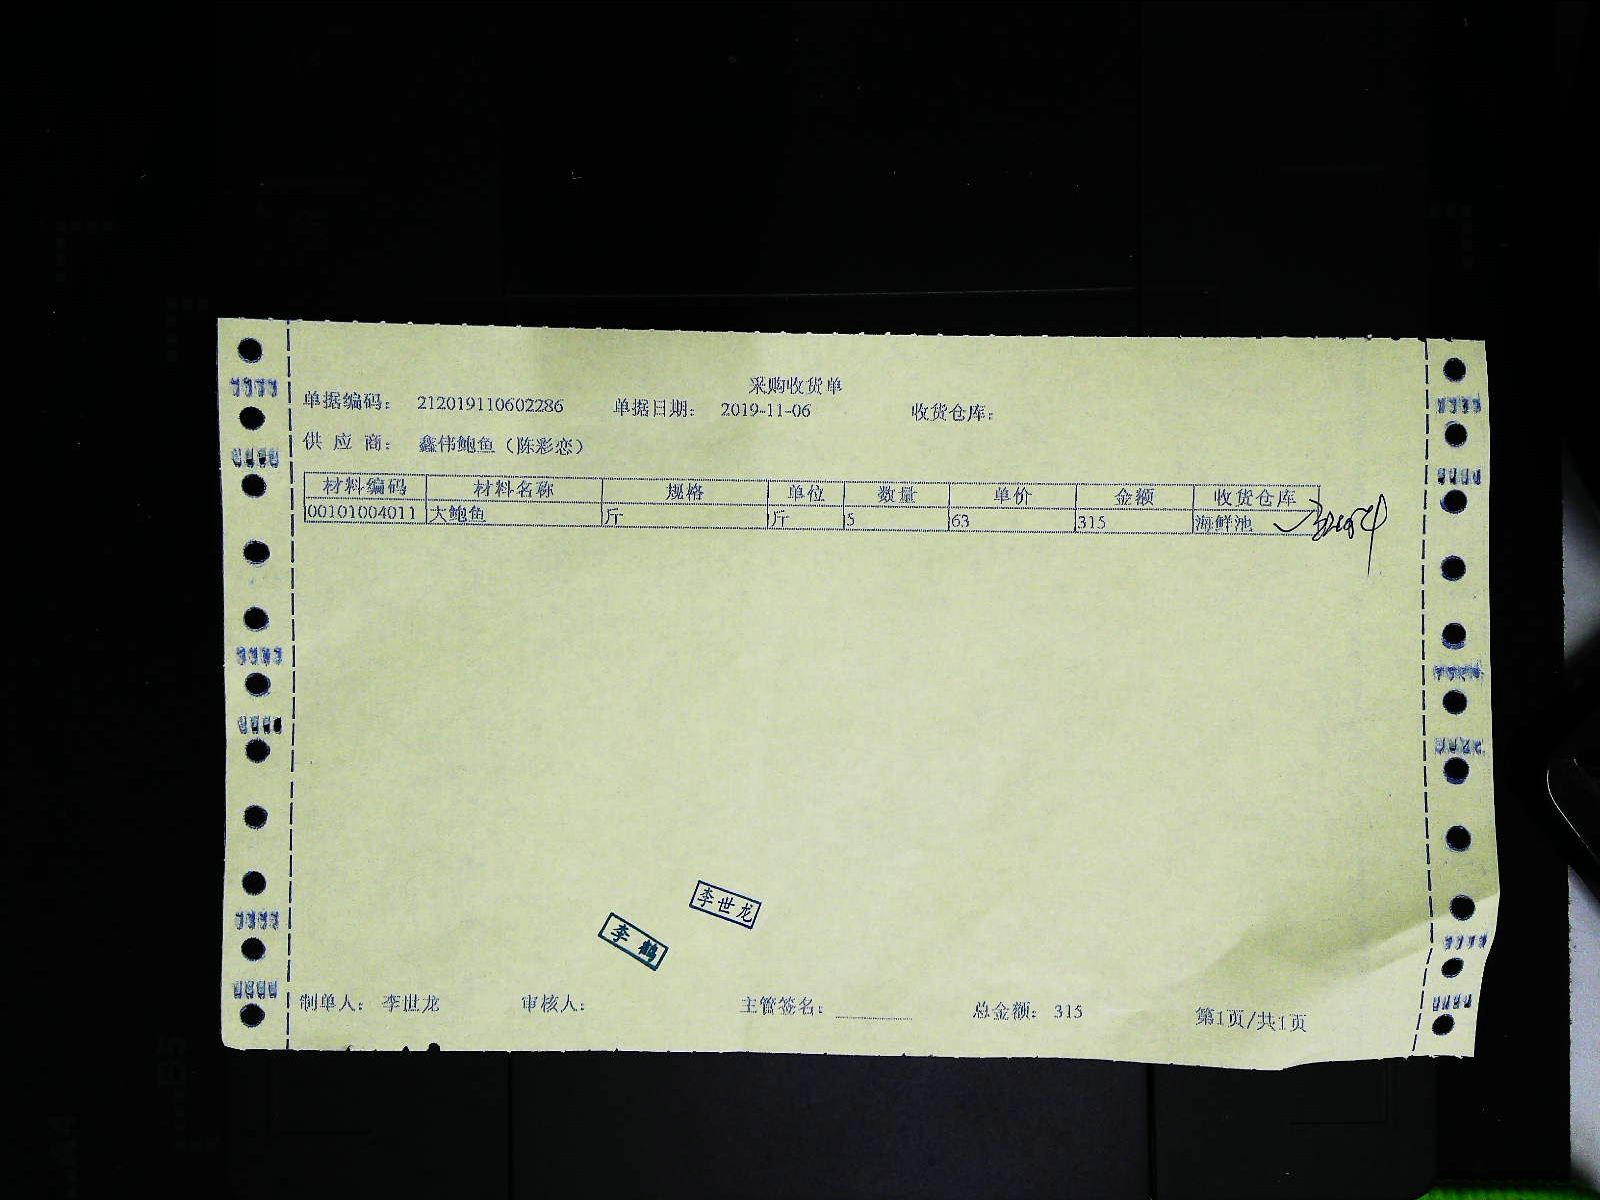 采购收货单
单据编码： 212019110602286 单据日期： 2019-11-06 收货仓库：
供 应 商： 鑫伟鲍鱼（陈彩恋）
材料编码 材料名称 规格 单位 数量 单价 金额 收货仓库
00101004011 大鲍鱼 斤 斤 5 63 315 海鲜池
李世龙
李鹤
制单人： 李世龙 审核人： 主管签名： 总金额： 315 第1页/共1页